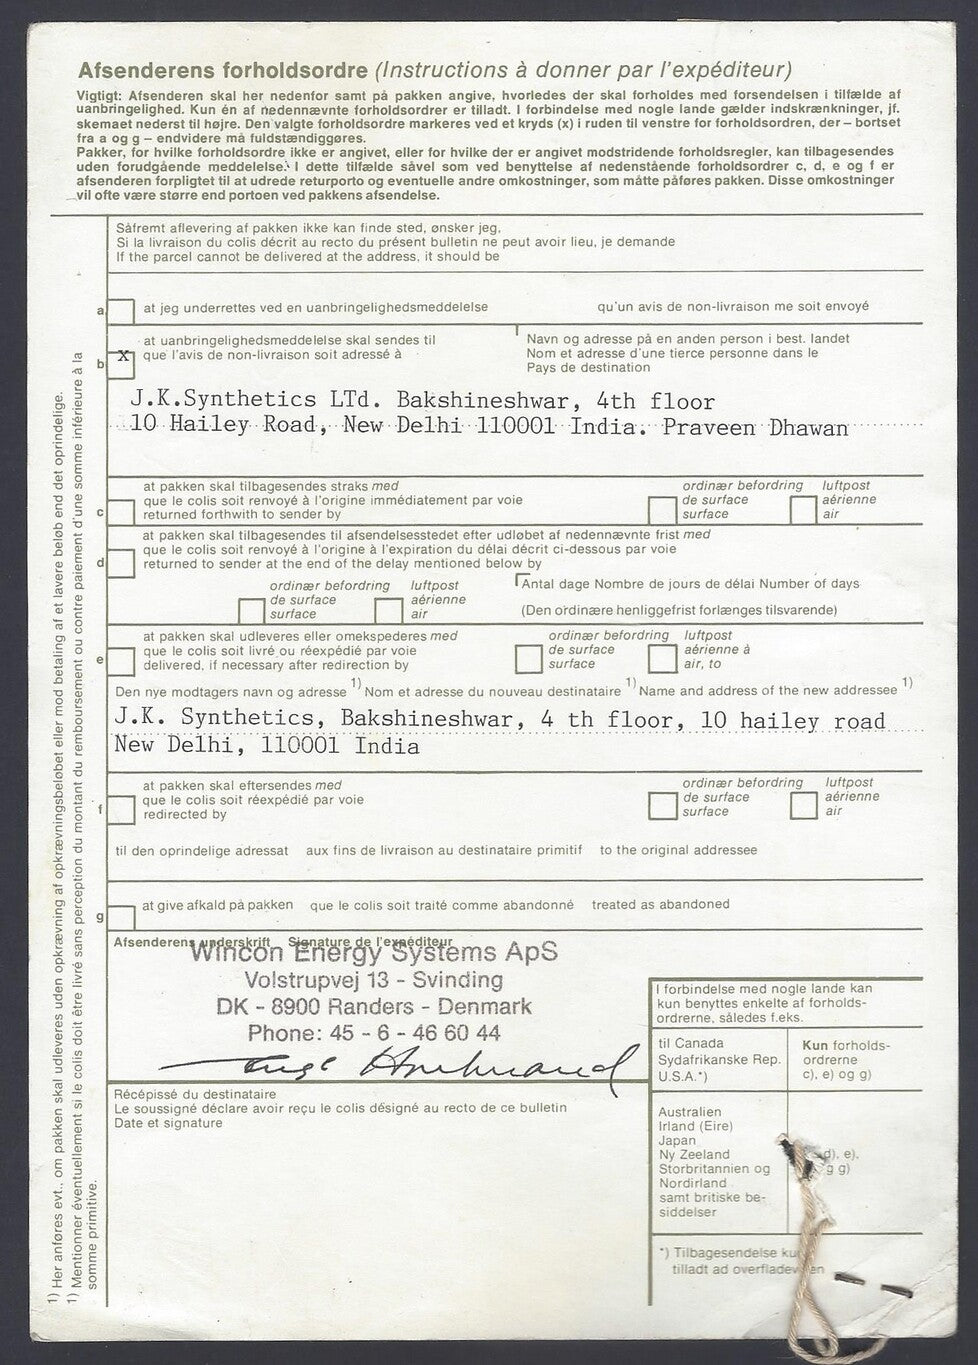 Afsenderens forholdsordre (Instructions à donner par l'expéditeur)
Vigtigt: Afsenderen skal her nedenfor samt på pakken angive, hvorledes der skal forholdes med forsendelsen i tilfælde af
uanbringelighed. Kun én af nedennævnte forholdsordrer er tilladt. I forbindelse med nogle lande gælder indskrænkninger, jf.
skemaet nederst til højre. Den valgte forholdsordre markeres ved et kryds (x) i ruden til venstre for forholdsordren, der – bortset
fra a og g – endvidere må fuldstændiggøres.
Pakker, for hvilke forholdsordre ikke er angivet, eller for hvilke der er angivet modstridende forholdsregler, kan tilbagesendes
uden forudgående meddelelse. I dette tilfælde såvel som ved benyttelse af nedenstående forholdsordrer c, d, e og f er
afsenderen forpligtet til at udrede returporto og eventuelle andre omkostninger, som måtte påføres pakken. Disse omkostninger
vil ofte være større end portoen ved pakkens afsendelse.
Såfremt aflevering af pakken ikke kan finde sted, ønsker jeg,
Si la livraison du colis décrit au recto du présent bulletin ne peut avoir lieu, je demande
If the parcel cannot be delivered at the address, it should be
a at jeg underrettes ved en uanbringelighedsmeddelelse qu'un avis de non-livraison me soit envoyé
at uanbringelighedsmeddelelse skal sendes til
b X que l'avis de non-livraison soit adressé à
Navn og adresse på en anden person i best. landet
Nom et adresse d'une tierce personne dans le
Pays de destination
J.K.Synthetics LTd. Bakshineshwar, 4th floor
10 Hailey Road, New Delhi 110001 India. Praveen Dhawan
at pakken skal tilbagesendes straks med
c que le colis soit renvoyé à l'origine immédiatement par voie
returned forthwith to sender by
ordinær befordring
de surface
surface
luftpost
aérienne
air
at pakken skal tilbagesendes til afsendelsesstedet efter udløbet af nedennævnte frist med
que le colis soit renvoyé à l'origine à l'expiration du délai décrit ci-dessous par voie
d returned to sender at the end of the delay mentioned below by
ordinær befordring
de surface
surface
luftpost
aérienne
air
Antal dage Nombre de jours de délai Number of days
(Den ordinære henliggefrist forlænges tilsvarende)
at pakken skal udleveres eller omekspederes med
que le colis soit livré ou réexpédié par voie
e delivered, if necessary after redirection by
ordinær befordring
de surface
surface
luftpost
aérienne à
air, to
Den nye modtagers navn og adresse 1) Nom et adresse du nouveau destinataire 1) Name and address of the new addressee 1)
J.K. Synthetics, Bakshineshwar, 4 th floor, 10 hailey road
New Delhi, 110001 India
at pakken skal eftersendes med
f que le colis soit réexpédié par voie
redirected by
ordinær befordring
de surface
surface
luftpost
aérienne
air
til den oprindelige adressat aux fins de livraison au destinataire primitif to the original addressee
g at give afkald på pakken que le colis soit traité comme abandonné treated as abandoned
Afsenderens underskrift Signature de l'expéditeur
Wincon Energy Systems ApS
Volstrupvej 13 - Svinding
DK - 8900 Randers - Denmark
Phone: 45 - 6 - 46 60 44
Récépissé du destinataire
Le soussigné déclare avoir reçu le colis désigné au recto de ce bulletin
Date et signature
I forbindelse med nogle lande kan
kun benyttes enkelte af forholds-
ordrerne, således f.eks.
til Canada
Sydafrikanske Rep.
U.S.A.*)
Kun forholds-
ordrerne
c), e) og g)
Australien
Irland (Eire)
Japan
Ny Zeeland
Storbritannien og
Nordirland
samt britiske be-
siddelser
d), e),
g g)
*) Tilbagesendelse kun
tilladt ad overfladevejen
1) Her anføres evt., om pakken skal udleveres uden opkrævning af opkrævningsbeløbet eller mod betaling af et lavere beløb end det oprindelige.
1) Mentionner éventuellement si le colis doit être livré sans perception du montant du remboursement ou contre paiement d'une somme inférieure à la
somme primitive.